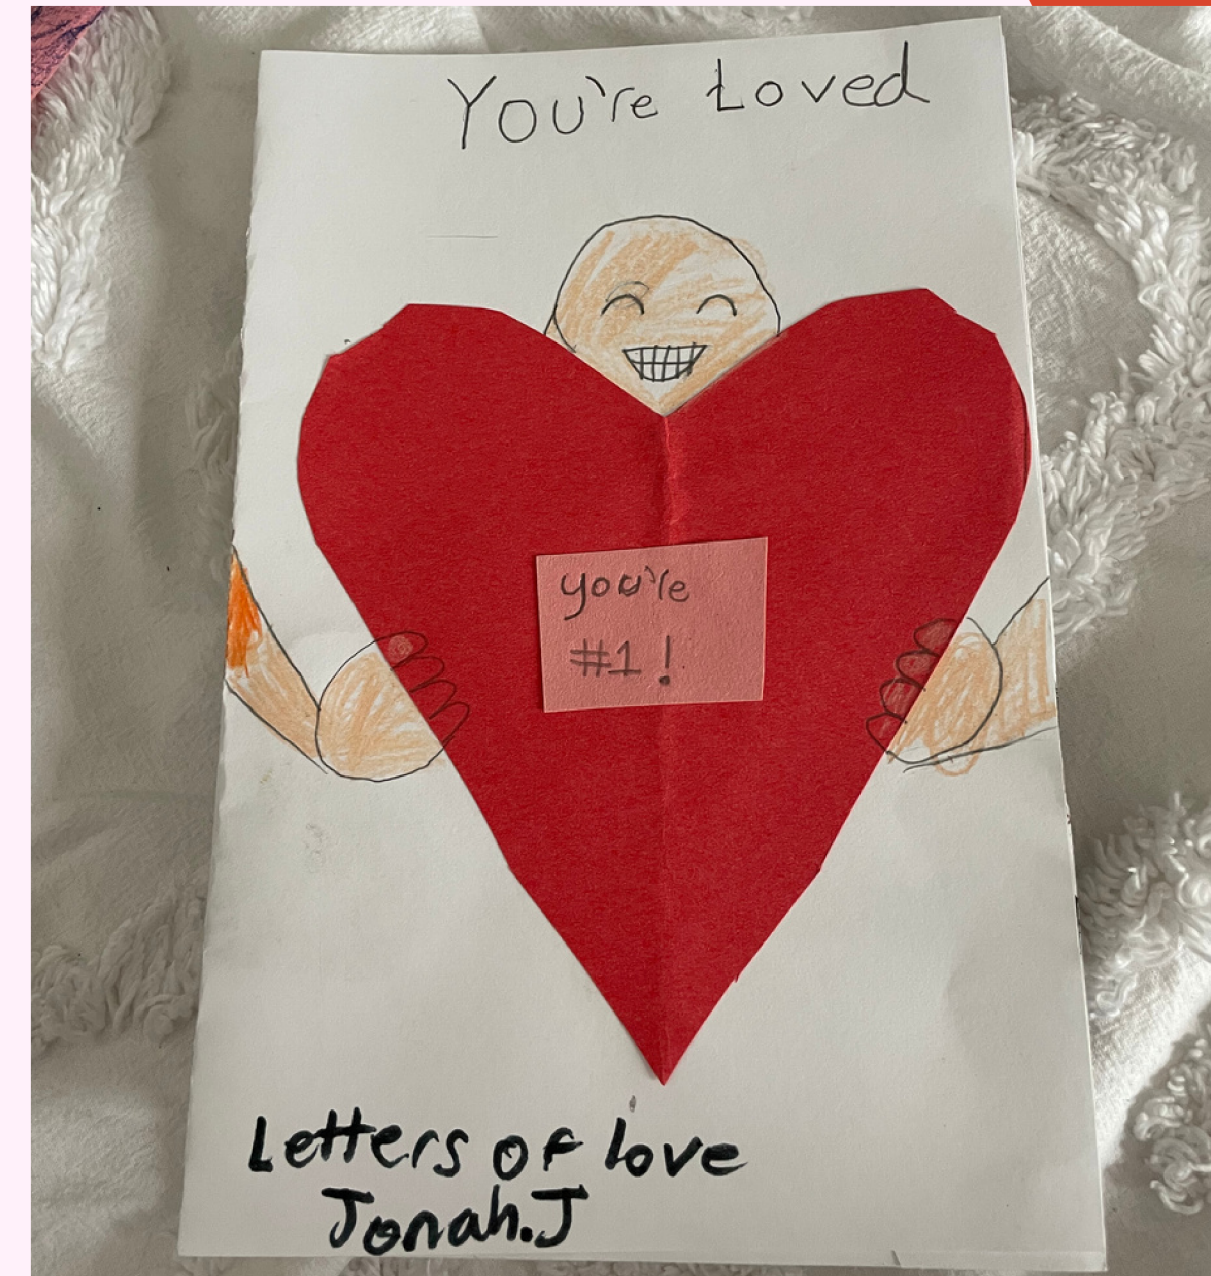 You're Loved
you're
#1!
Letters of love
Jonah.J